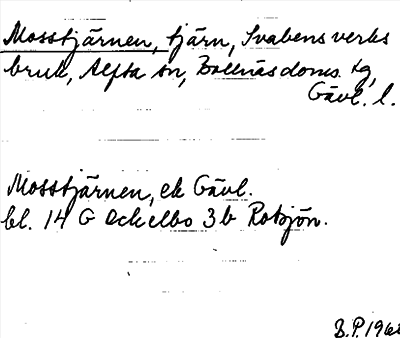 Mosstjärnen, tjärn, Svabensverks
bruk, Alfta sn, Bollnäs doms. tg,
Gävl. l.
Mosstjärnen, ek Gävl.
bl. 14 G Ockelbo 3b Rotsjön.
B.P. 196